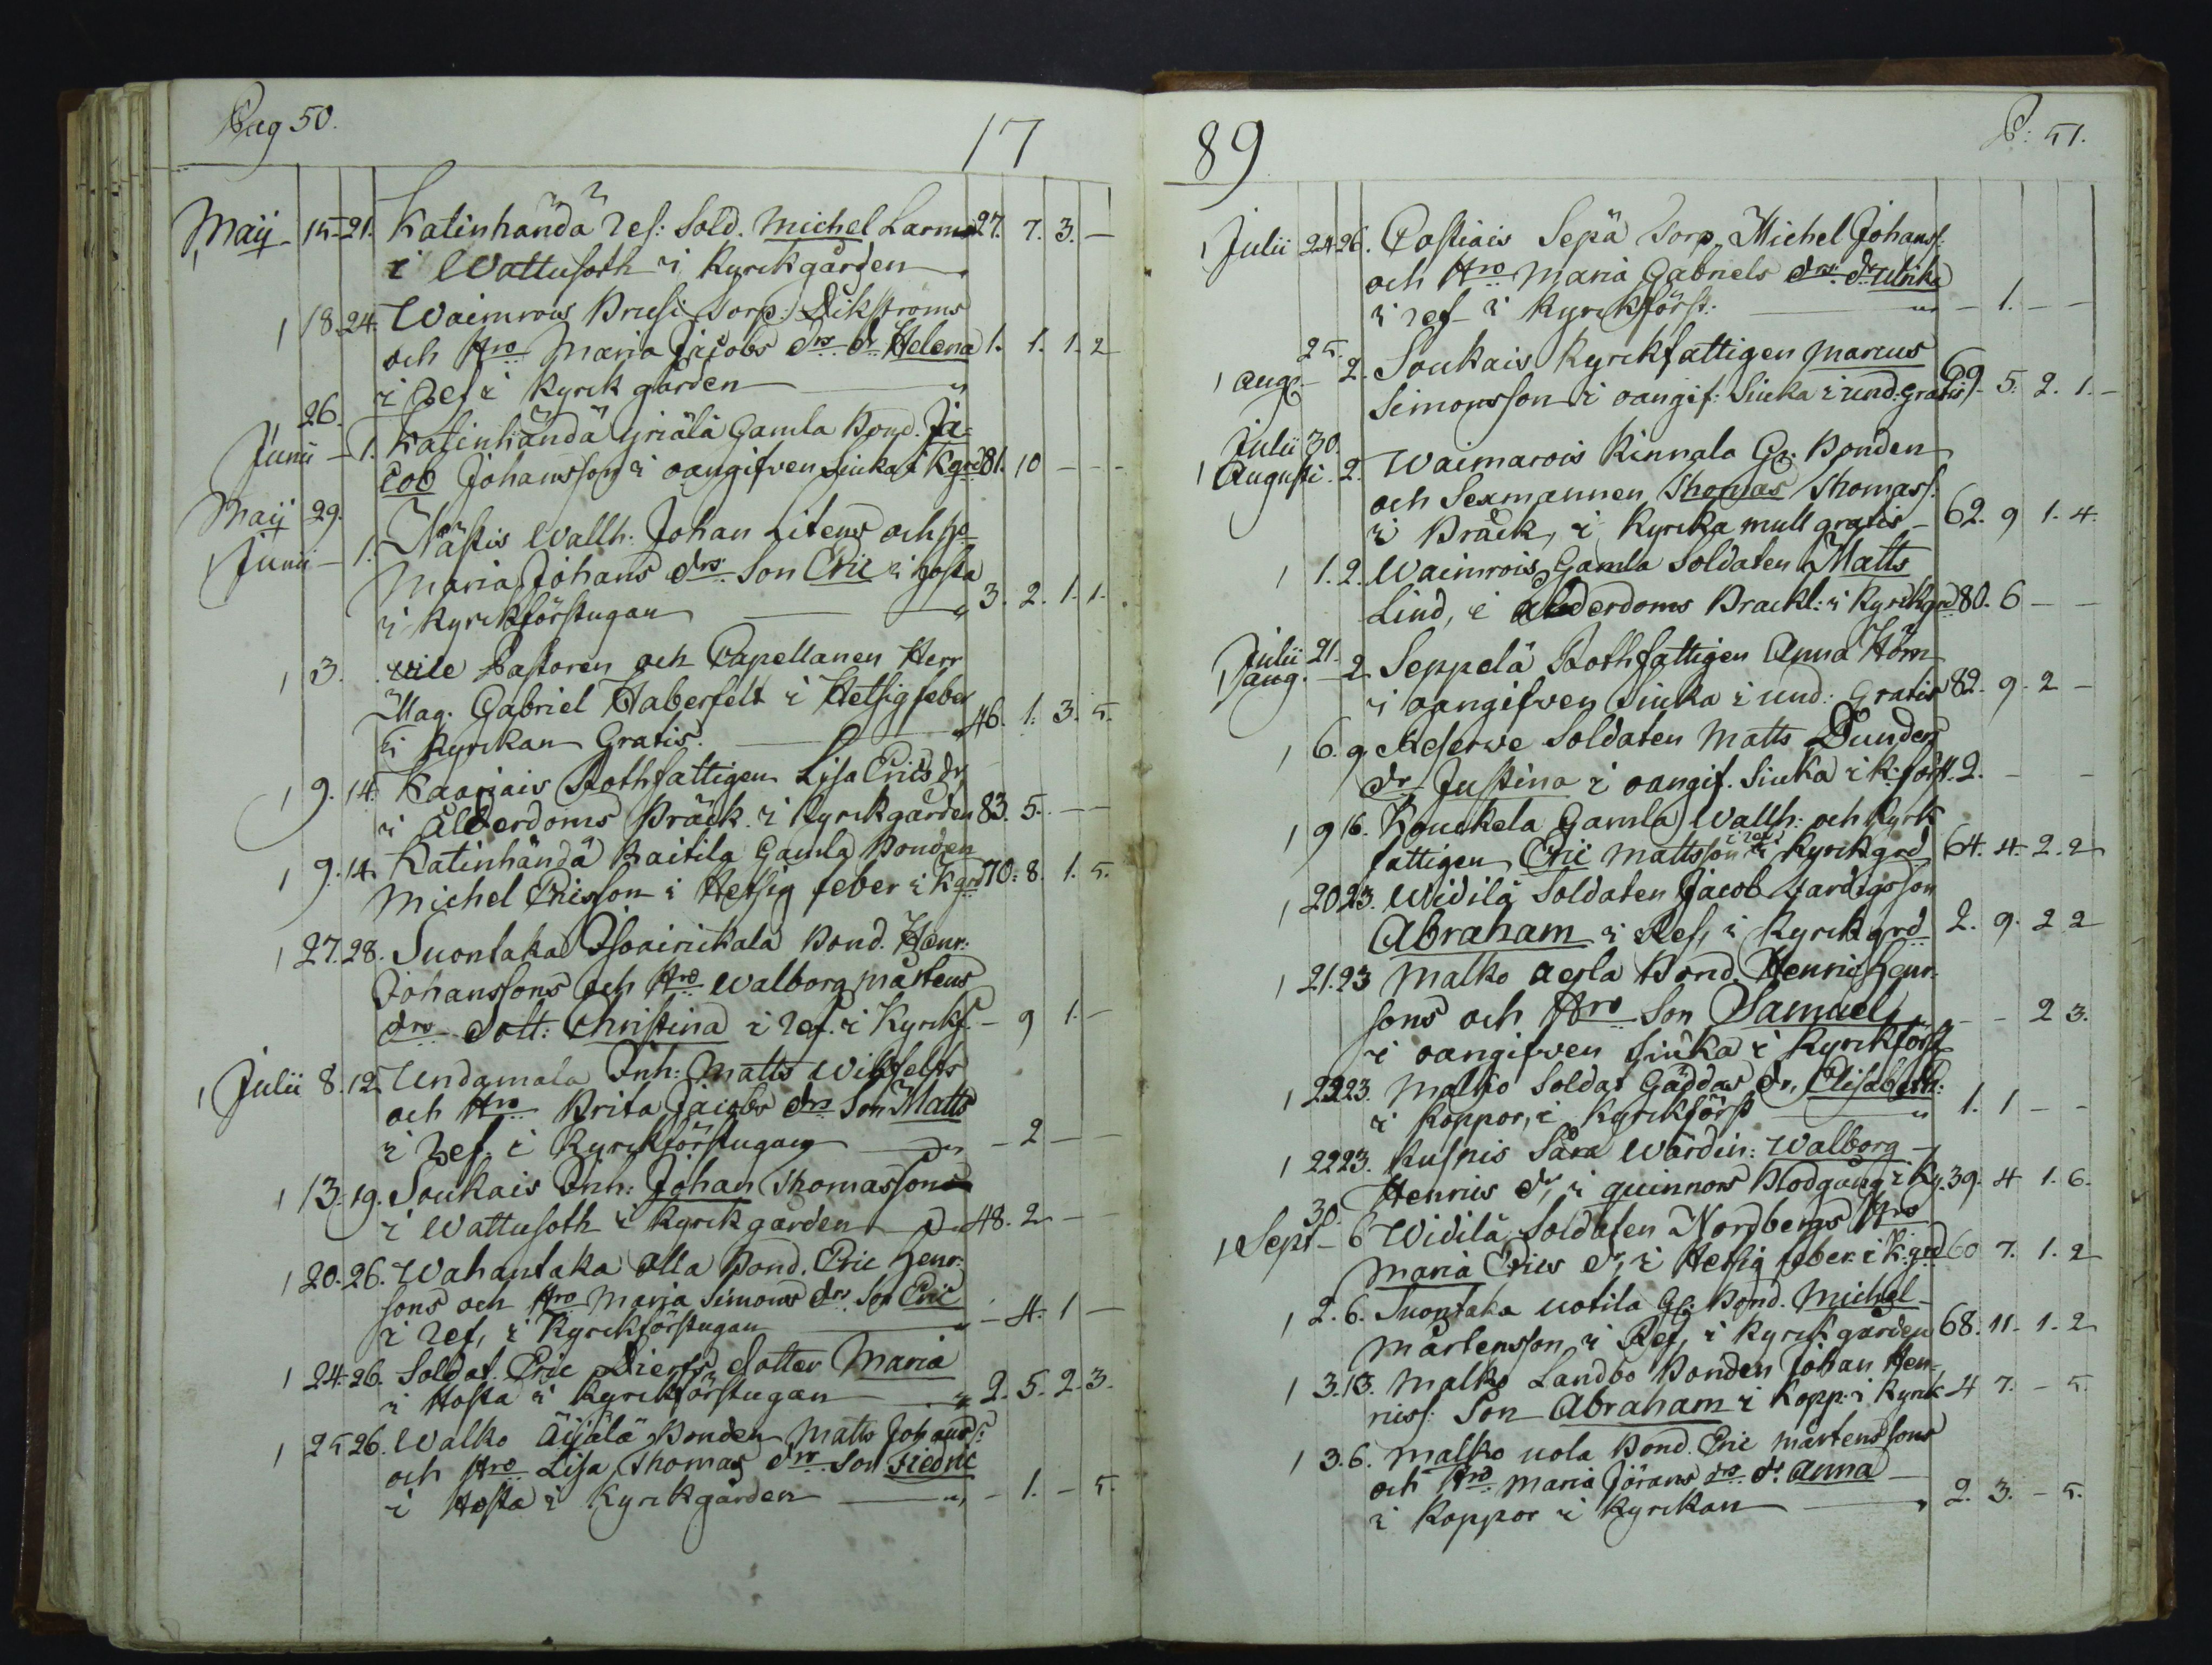 Pag 50.
17
Maij 15. 21. Katinhändä res: Sold. Michel Larms 27. 7. 3. —
i Wattusoth i Kyrckgården
18. 24. Waimrous Torp: Dikströms
och Hro Maria Jacobs drs dr Helena 1. 1. 1. 2
i Ref i Kyrckgården
26.
Junii – 1. Katinhändä yriälä Gamla Bond. Ja=
cob Johansson i oangifven siuka i Kgrd 81. 10 — —
Maij 29.
Junii – 1. Nästis Wallh. Johan Litens och Ho
Maria Johans drs Son Eric i Hosta
i Kyrckförstugan 3. 2. 1. 1.
3. Vice Pastoren och Capellanen Herr
Mag. Gabriel Haberfelt i Hetsig feber
i Kyrckan Gratis. 46. 1. 3. 5.
9. 14. Kaariais Rothfattigen Lisa Erics dr
i Ålderdoms Bräck. i Kyrckgården 83. 5. — —
9. 14. Katinhändä Kaitila Gamla Bonden
Michel Ericsson i Hetsig feber i Kgrd 70. 8. 1. 5.
27. 28. Suontaka Isoairickala Bond. Henr:
Johanssons och Hro Walborg Mårtens
drs Dott: Christina i Ref. i Kyrckf. – 9 1. –
Julii 8. 12. Undamala Inh: Matts Wikfelts
och Hro Brita Jacobs drs Son Matts
i Ref. i Kyrckförstugan – 2 — —
13. 19. Soukais Inh: Johan Thomasson
i Wattusoth i Kyrckgården 48. 2 — —
20. 26. Wahantaka Alla Bond. Eric Henr:
sons och Hro Maria Simons drs Son Eric
i Ref, i Kyrckförstugan – 4. 1 —
24. 26. Soldat. Eric Dierfs dotter Maria
i Hosta i Kyrckförstugan 2. 5. 2. 3.
25 26. Walko Äijälä Bonden Matts Johans:
och Hro Lisa Thomas drs Son Fiedric
i Hosta i Kyrckgården – 1. – 5.
89
P: 51.
Julii 24 26. Postiais Sepä Torp. Michel Johans:
och Hro Maria Gabriels drs dr Ulrika
i ref i Kyrckförst: – 1. — —
25.
Aug. – 2. Soukais Kyrckfattigen Marcus
Simonsson i oangif: Siuka i und. gratis 69. 5. 2. 1. –
Julii 30.
Augusti. 2. Waimarois Kinnala Gl: Bonden
och Sexmannen Thomas Thomass:
i Bräck, i Kyrcka mull gratis – 62. 9 1. 4.
1. 2. Waimrois Gamla Soldaten Matts
Lind, i Ålderdoms Brackl: i Kyrckgrd 80. 6 — —
Julii 21.
Aug. – 2 Seppelä Rothfattigen Anna
i oangifven siuka i und: Gratis 82. 9. 2 –
6. 9 Reserwe Soldaten Matts Dunders
dr Justina i oangif. Siuka i k:förft. 2. – –
9 16. Kouckela Gamla Wallh: och Kyrk
fattigen Eric Mattsson i ref i Kyrckgrd 64. 4. 2. 2
20 23. Widilä Soldaten Jacob Fardigs son
Abraham i Ref, i Kyrckgrd 2. 9. 2 2
21. 23 Malko Aerla Bond. Henric Henr.
sons och Hro Son Samuel – – 2 3.
i oangifven siuka i Kyrckförst
22 23. Malko Soldat Gäddas dr, Elisabeth:
i Koppor, i Kyrckförst 1. 1 – –
22 23. Kusnis Sara Wärdin: Walborg –
Henrics dr, i quinnors Blodgång i Ky. 39. 4 1. 6.
30.
Sept – 6 Widilä Soldaten Nordbergs Hro
Maria Erics dr, i Hetsig feber i K:grd 60 7. 1. 2
2. 6. Suontaka Uotila Gl: Bond. Michel –
Mårtensson, i Ref, i Kyrckgården 68. 11. 1. 2
3. 13. Malko Landbo Bonden Johan Hen=
rics: Son Abraham i Kopp: i Kyrck 4 7. – 5.
3. 6. Malko Uola Bond. Eric Mårtenssons
och Hro Maria Jörans drs dr Anna
i Koppor i Kyrckan 2. 3. – 5.